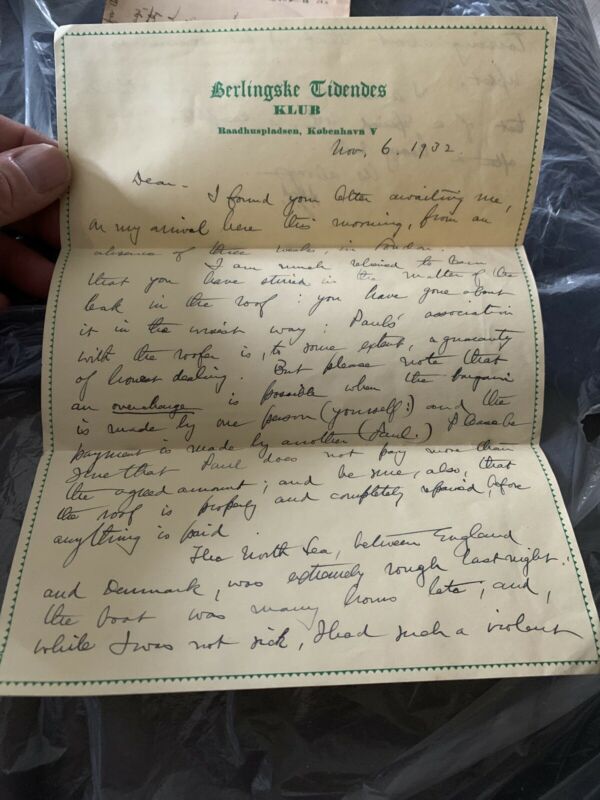 Berlingske Tidendes
KLUB
Raadhuspladsen, København V
Nov. 6. 1932.
Dear - I found your letter awaiting me,
on my arrival here this morning, from an
absence of three weeks, in London.
I am much relieved to learn
that you have stirred in the matter of the
leak in the roof: you have gone about
it in the wisest way: Paul's association
with the roofer is, to some extent, a guaranty
of honest dealing. But please note that
an overcharge is possible when the bargain
is made by one person (yourself!) and the
payment is made by another (Paul.) Please be
sure that Paul does not pay more than
the agreed amount; and be sure, also, that
the roof is properly and completely repaired, before
anything is paid.
The North Sea, between England
and Denmark, was extremely rough last night.
the boat was many hours late, and,
while I was not sick, I had such a violent